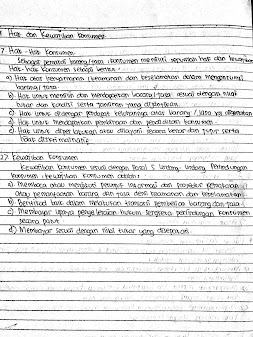 Hak dan Kewajiban Konsumen
Hak-Hak Konsumen
Sebagai pemakai barang/jasa, konsumen memiliki sejumlah hak dan kewajiban
Hak-hak Konsumen sebagai berikut:
a) Hak atas kenyamanan, keamanan dan keselamatan dalam mengonsumsi
barang/jasa
b) Hak untuk memilih dan mendapatkan barang/jasa sesuai dengan nilai
tukar dan kondisi serta jaminan yang dijanjikan.
c) Hak untuk didengar pendapat keluhannya atas barang/jasa yg digunakan
d) Hak untuk mendapatkan pembinaan dan pendidikan konsumen
e) Hak untuk diperlakukan atau dilayani secara benar dan jujur serta
tidak diskriminatif
2.) Kewajiban Konsumen
Kewajiban Konsumen sesuai dengan Pasal 5 Undang-Undang Perlindungan
Konsumen, kewajiban konsumen adalah:
a) Membaca atau mengikuti petunjuk informasi dan prosedur pemakaian
atau pemanfaatan barang dan jasa demi keamanan dan keselamatan
b) Beritikad baik dalam melakukan transaksi pembelian barang dan jasa
c) Mengikuti upaya penyelesaian hukum sengketa perlindungan konsumen
secara patut
d) Membayar sesuai dengan nilai tukar yang disepakati